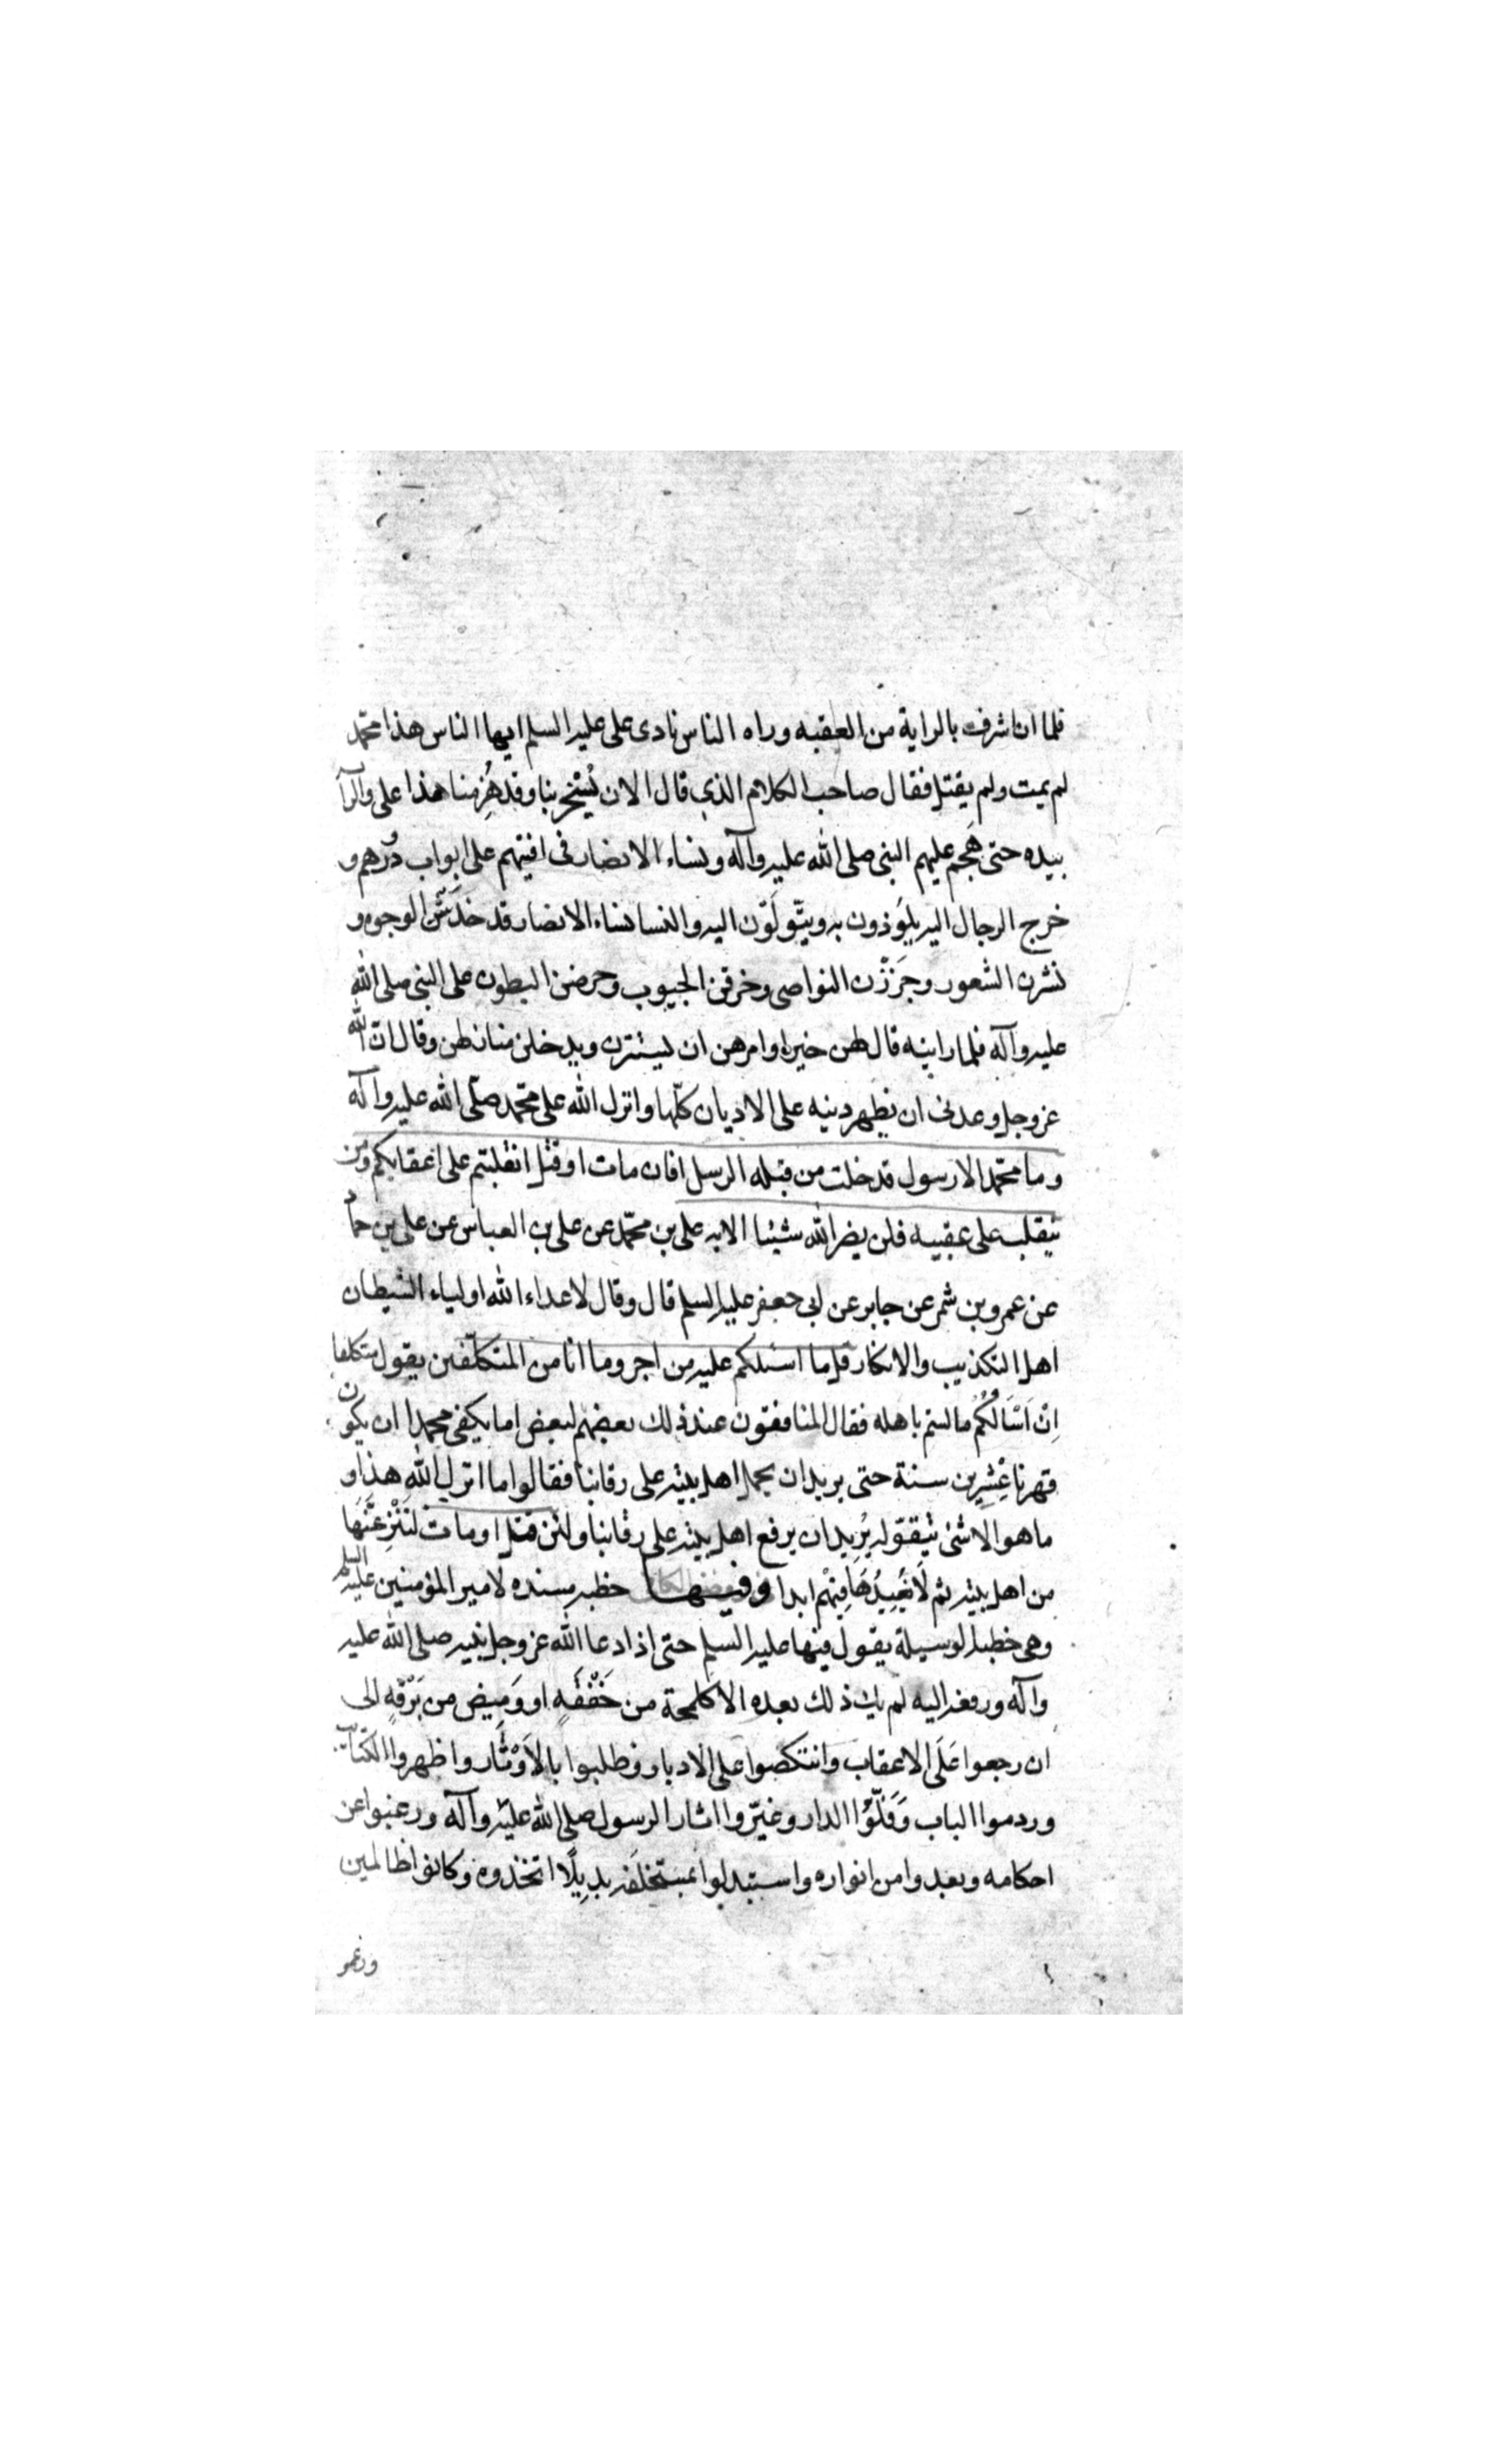 فلما ان اشرف بالراية من العقبه وراه الناس نادى على عليه السلم ايها الناس هذا محمّد
لم يمت ولم يقتل فقال صاحب الكلام الذي قال الان يُسْخر بنا وقد هُزِمنا هذا على والرا
بيده حتى هَجم عليهم النبى صلى الله عليه وآله ونساء الانصار فى افنيتهم على ابواب دُورهم و
خرج الرجال اليه يلوَذون به ويتّولَوّن اليه والنسا نساء الانصار قد خدَشْن الوجوه و
نشرن الشعور وجَززْن النواصى وخرقن الجيوب وحرضن البطون على النبى صلى الله
عليه وآله فلما راينه قال لهن خيرا وامرهن ان يستترن ويدخلن منازلهن وقال انّ الله
عزوجل وعدنى ان يظهر دينه على الاديان كلّها وانزل الله على محمّد صلّى الله عليه وآله
وما محمّد الا رسول قد خلت من قبله الرسل افان مات او قتل انقلبتم على اعقابكم ومن
ينقلب على عقبيه فلن يضر الله شيئا الايه على بن محمّد عن على بن العباس عن على بن حماد
عن عمرو بن شمر عن جابر عن ابى جعفر عليه السلم قال وقال لاعداء الله اولياء الشيطان
اهل التكذيب والانكار قل ما اسئلكم عليه من اجر وما انا من المتكلّفين يقول متكلفا
اِنْ اَسْاَلُكُمْ ما لستم باهله فقال المنافقون عند ذلك بعضهم لبعض اما يكفى محمدا ان يكون
قهرنا عِشرِين سنة حتى يريد ان يحمل اهل بيته على رقابنا فقالوا ما انزل الله هذا و
ما هو الا شئ يتقوّله يُرِيد ان يرفع اهل بيته على رقابنا ولئن قتل او مات لنَنْزِعَنّهَا
من اهل بيته ثم لَا نُعِيدُهَا فِيهْم ابدا وفيها خطبه مسنده لامير المؤمنين عليه السلم
وهى خطبه الوسيلة يقول فيها عليه السلم حتى اذا دعا الله عزوجل نبيه صلى الله عليه
وآله ورفعه اليه لم يك ذلك بعده الا كلمحة من خَفْقَةٍ او وَمِيض من بَرْقهٍ الى
ان رجعوا عَلَى الاعقاب وانتكصوا على الادبار وطلبوا بالاَوْتْار واظهروا الكتايب
وردموا الباب وَفَلّوُا الدار وغيّروا اثار الرسول صلى الله عليه وآله ورغبوا عن
احكامه وبعدوا من انواره واستبدلوا بمستخلَفه بدِيِلًا اتخذوه وكانوا ظالمين
وزعمو